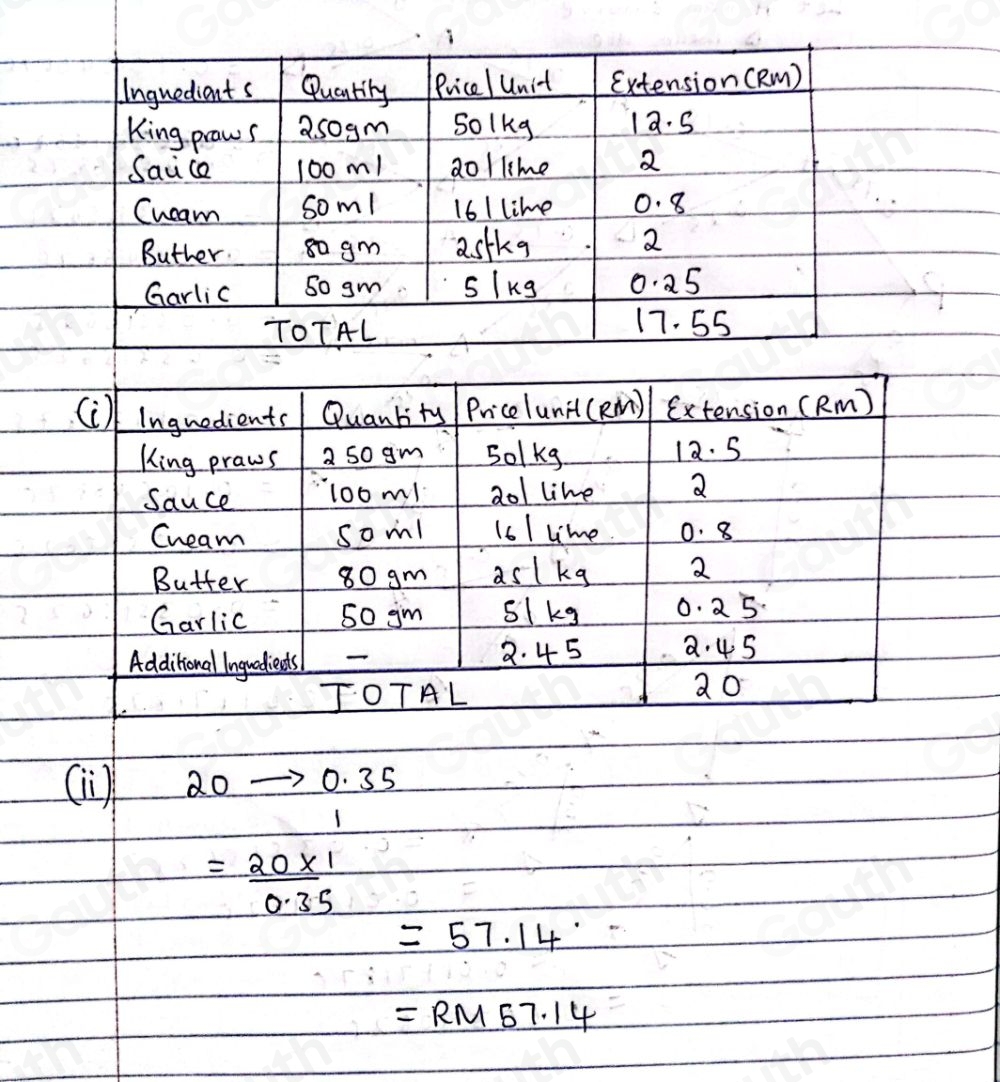 Ingnedients Quantity Price/Unit Extension (RM)
King praws 250gm 50/kg 12.5
Sauce 100 ml 20/litre 2
Cneam 50ml 16/litre 0.8
Buther. 80 gm 25/kg 2
Garlic 50 gm 5/kg 0.25
TOTAL 17.55
(i) Ingnedients Quantity Price/unit (RM) Extension (RM)
King praws 250 gm 50/kg 12.5
Sauce 100 ml 20/litre 2
Cneam 50 ml 16/litre 0.8
Butter 80 gm 25/kg 2
Garlic 50 gm 5/kg 0.25
Additional Ingnedients – 2.45 2.45
TOTAL 20
(ii) 20 → 0.35
1
= 20 x 1
0.35
= 57.14
= RM 57.14
Gauth